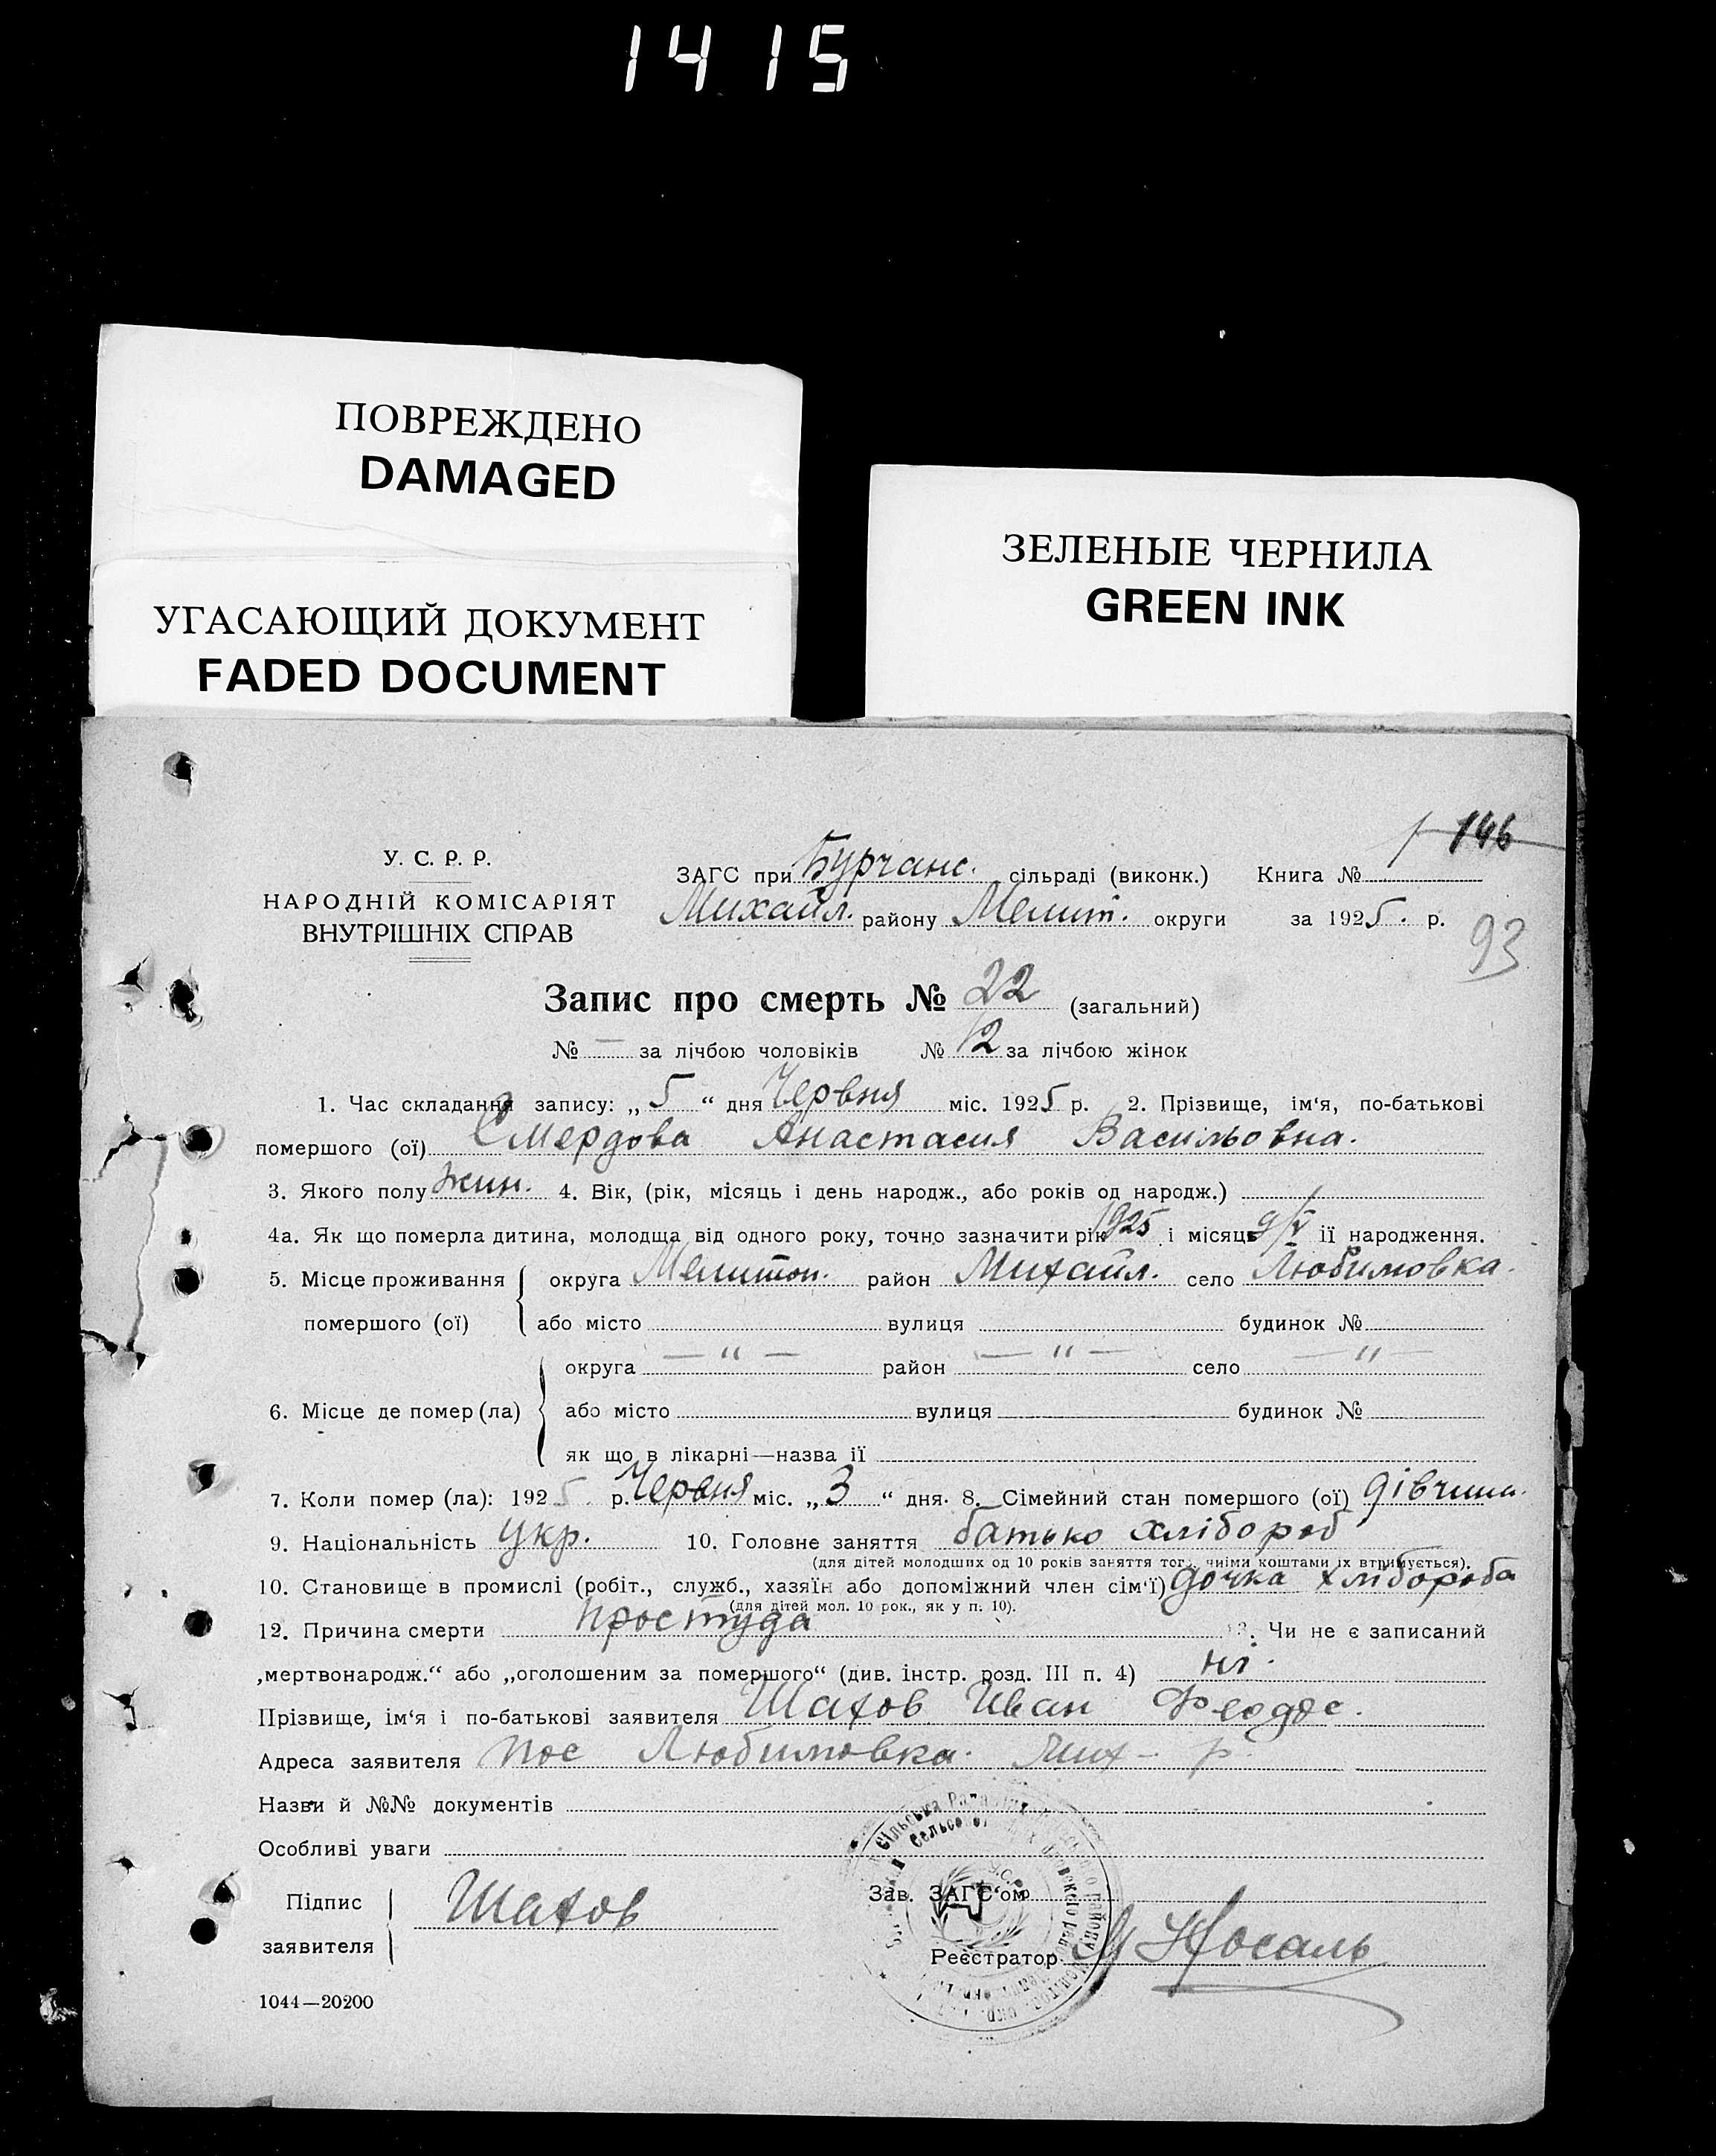 1415
ПОВРЕЖДЕНО
DAMAGED
УГАСАЮЩИЙ ДОКУМЕНТ
FADED DOCUMENT
ЗЕЛЕНЫЕ ЧЕРНИЛА
GREEN INK
146
У. С. Р. Р.
НАРОДНІЙ КОМІСАРІЯТ
ВНУТРІШНІХ СПРАВ
ЗАГС при Бурчанс. сільраді (виконк.) Книга №
Михайл. району Мелит. округи за 1925. р.
93
Запис про смерть № 22 (загальний)
№ — за лічбою чоловіків № 12 за лічбою жінок
1. Час складання запису: „5“ дня Червня міс. 1925 р. 2. Прізвище, ім‘я, по-батькові
помершого (ої) Смердова Анастасия Васильовна.
3. Якого полу жин. 4. Вік, (рік, місяць і день народж., або років од народж.)
4а. Як що померла дитина, молодща від одного року, точно зазначити рік 1925 і місяць 9/V її народження.
5. Місце проживання округа Мелитоп. район Михайл. село Любимовка.
помершого (ої) або місто вулиця будинок №
округа — “ — район — “ — село — “ —
6. Місце де помер (ла) або місто вулиця будинок №
як що в лікарні—назва її
7. Коли помер (ла): 1925 р. Червня міс. „3“ дня. 8. Сімейний стан помершого (ої) дівчина.
9. Національність укр. 10. Головне заняття батько хлібороб
(для дітей молодших од 10 років заняття того, чиїми коштами їх втримується).
10. Становище в промислі (робіт., служб., хазяїн або допоміжний член сім‘ї) дочка хлібороба
(для дітей мол. 10 рок., як у п. 10).
12. Причина смерти простуда 13. Чи не є записаний
„мертвонародж.“ або „оголошеним за помершого“ (див. інстр. розд. III п. 4) ні.
Прізвище, ім‘я і по-батькові заявителя Шахов Иван Феодос.
Адреса заявителя пос Любимовка. Мих- р.
Назви й №№ документів
Особливі уваги
Підпис
заявителя Шахов
Зав. ЗАГС‘ом
Реєстратор М Носаль
1044—20200